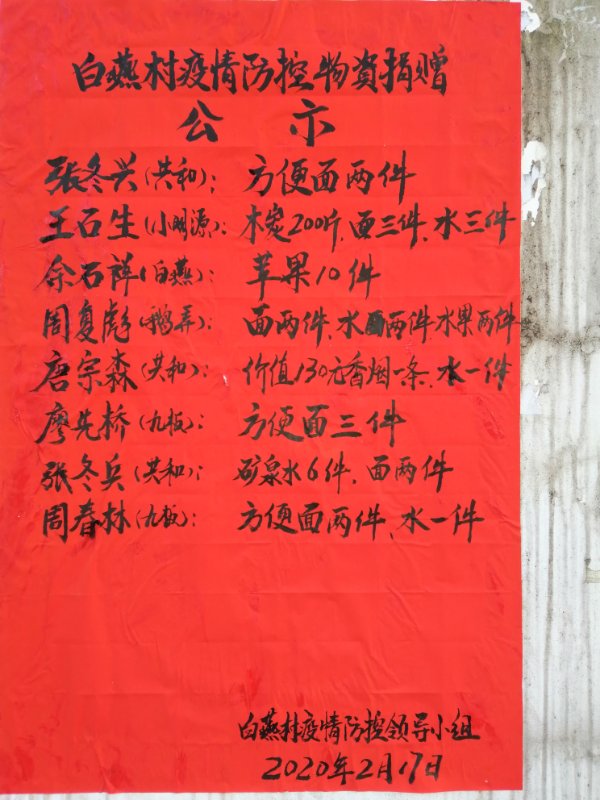 白燕村疫情防控物资捐赠
公示
张冬兴(共和): 方便面两件
王石生(小明源): 木炭200斤、面三件、水三件
余石萍(白燕): 苹果10件
周复彪(鹅弄): 面两件、水两件水果两件
唐宗森(共和): 价值130元香烟一条、水一件
廖先桥(九板): 方便面三件
张冬兵(共和): 矿泉水6件、面两件
周春林(九板): 方便面两件、水一件
白燕村疫情防控领导小组
2020年2月17日